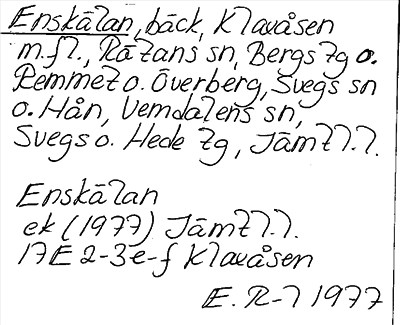 Enskälan, bäck, Klavåsen
m.fl., Rätans sn, Bergs tg o.
Remmet o. Överberg, Svegs sn
o. Hån, Vemdalens sn,
Svegs o. Hede tg, Jämtl.l.
Enskälan
ek (1977) Jämtl.l.
17E 2-3e-f Klavåsen
E. R-l 1977